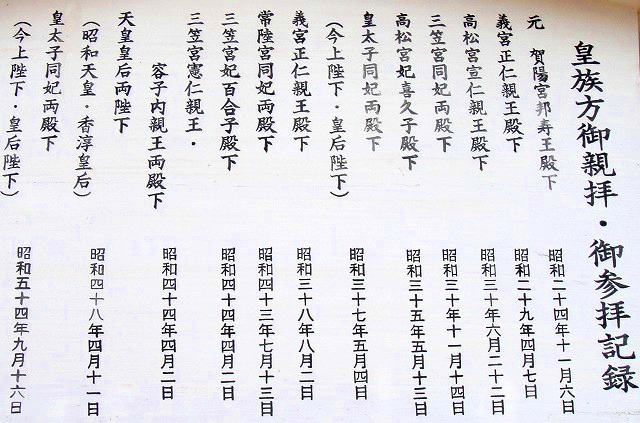 皇族方御親拝・御参拝記録
元 賀陽宮邦寿王殿下 昭和二十四年十一月六日
義宮正仁親王殿下 昭和二十九年四月七日
高松宮宣仁親王殿下 昭和三十年六月二十二日
三笠宮同妃両殿下 昭和三十年十一月十四日
高松宮妃喜久子殿下 昭和三十五年五月十三日
皇太子同妃両殿下 昭和三十七年五月四日
(今上陛下・皇后陛下)
義宮正仁親王殿下 昭和三十八年八月二日
常陸宮同妃両殿下 昭和四十三年七月十三日
三笠宮妃百合子殿下 昭和四十四年四月二日
三笠宮憲仁親王・
容子内親王両殿下 昭和四十四年四月二日
天皇皇后両陛下
(昭和天皇・香淳皇后) 昭和四十八年四月十一日
皇太子同妃両殿下
(今上陛下・皇后陛下) 昭和五十四年九月十六日